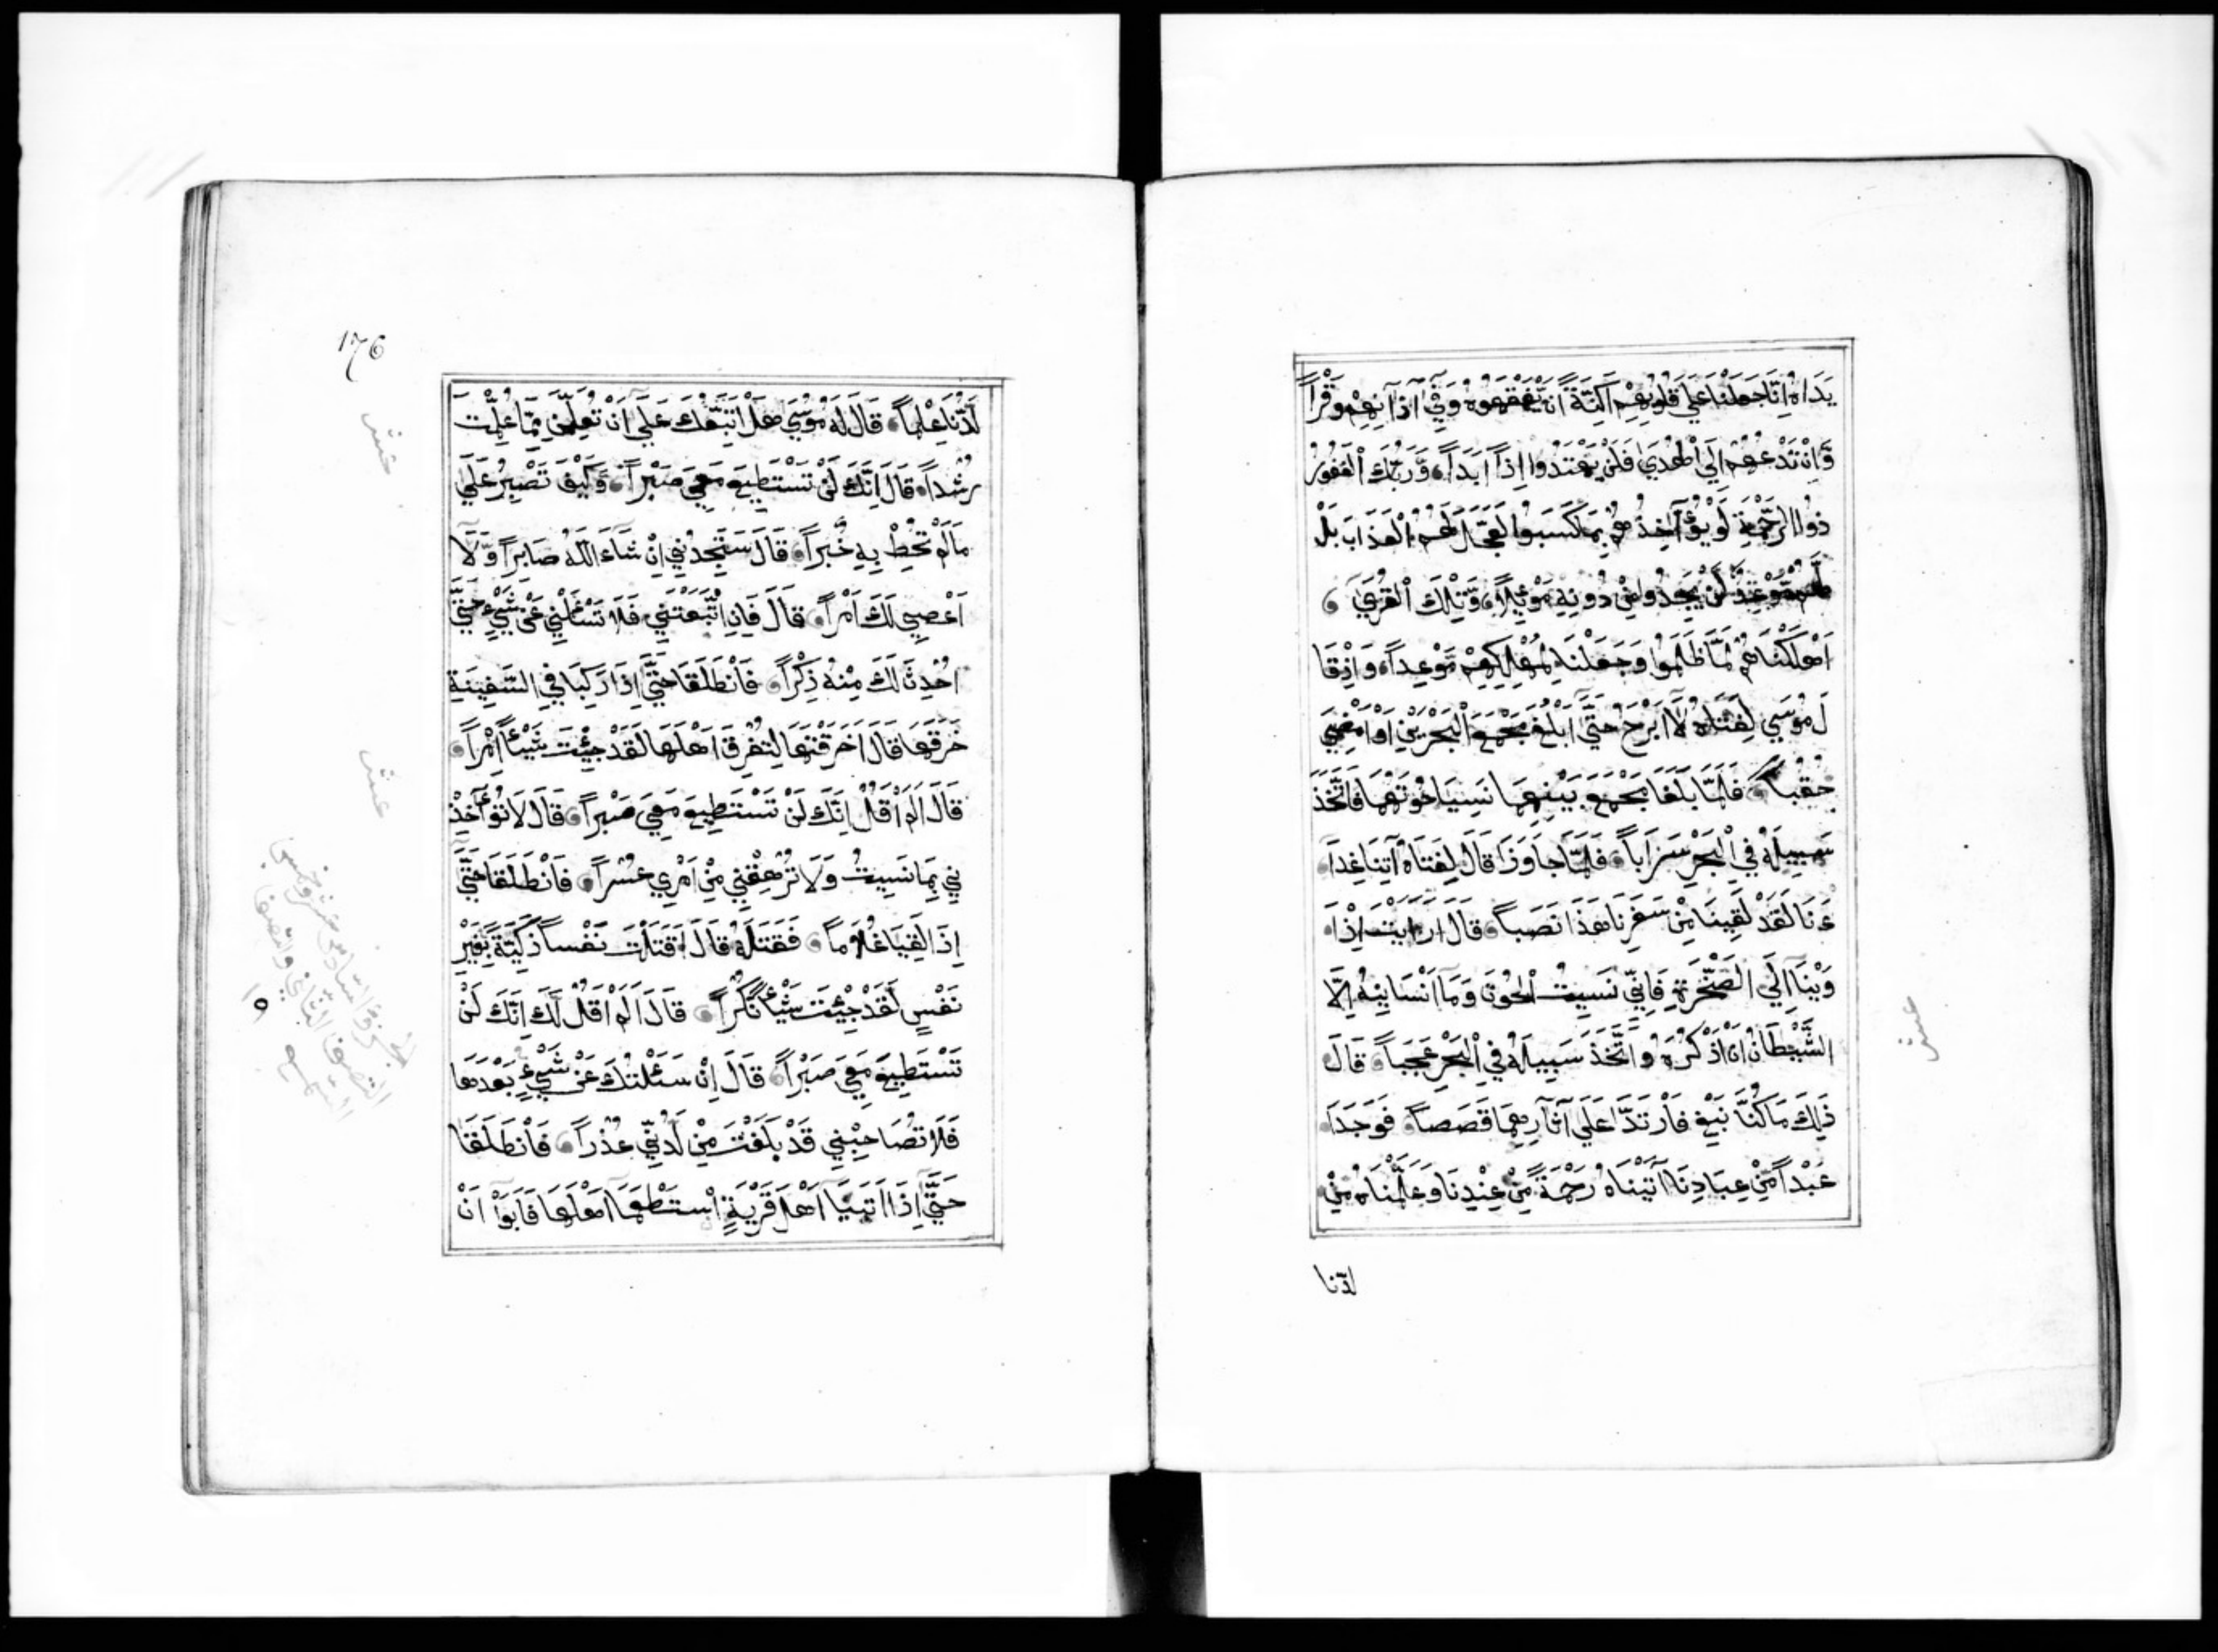 يَدَاهُ اِنَّا جَعَلْنَا عَلَي قُلُوبِهِمْ اَكِنَّةً اَنْ يَّفْقَهُوهُ وَفِي آذَانِهِمْ وَقْراً
وَّاِنْ تَدْعُهُمْ اِلَي الْهُدَي فَلَنْ يَهْتَدُوا اِذاً اَبَداً وَّرَبُّكَ الْغَفُورُ
ذُوا الرَّحْمَةِ لَوْ يُؤَآخِذُهُمْ بِمَا كَسَبُوا لَعَجَّلَ لَهُمُ الْعَذَابَ بَلْ
لَّهُمْ مَّوْعِدٌ لَّنْ يَجِدُوا مِنْ دُونِهِ مَوْئِلاً وَّتِلْكَ الْقُرَي
اَهْلَكْنَاهُمْ لَمَّا ظَلَمُوا وَجَعَلْنَا لِمُهْلِكِهِمْ مَّوْعِداً وَاِذْ قَا
لَ مُوسَي لِفَتَاهُ لَا اَبْرَحُ حَتَّي اَبْلُغَ مَجْمَعَ الْبَحْرَيْنِ اَوْ اَمْضِيَ
حُقُباً فَلَمَّا بَلَغَا مَجْمَعَ بَيْنِهِمَا نَسِيَا حُوتَهُمَا فَاتَّخَذَ
سَبِيلَهُ فِي الْبَحْرِ سَرَباً فَلَمَّا جَاوَزَا قَالَ لِفَتَاهُ آتِنَا غَدَا
ءَنَا لَقَدْ لَقِينَا مِنْ سَفَرِنَا هَذَا نَصَباً قَالَ اَرَاَيْتَ اِذْ اَ
وَيْنَا اِلَي الصَّخْرَةِ فَاِنِّي نَسِيتُ الْحُوتَ وَمَا اَنْسَانِيهُ اِلَّا
الشَّيْطَانُ اَنْ اَذْكُرَهُ وَاتَّخَذَ سَبِيلَهُ فِي الْبَحْرِ عَجَباً قَالَ
ذَلِكَ مَا كُنَّا نَبْغِ فَارْتَدَّا عَلَي آثَارِهِمَا قَصَصاً فَوَجَدَا
عَبْداً مِّنْ عِبَادِنَا آتَيْنَاهُ رَحْمَةً مِّنْ عِنْدِنَا وَعَلَّمْنَاهُ مِنْ
لدنا
عشر
176
لَّدُنَّا عِلْماً قَالَ لَهُ مُوسَي هَلْ اَتَّبِعُكَ عَلَي اَنْ تُعَلِّمَنِ مِمَّا عُلِّمْتَ
رُشْداً قَالَ اِنَّكَ لَنْ تَسْتَطِيعَ مَعِيَ صَبْراً وَّكَيْفَ تَصْبِرُ عَلَي
مَا لَمْ تُحِطْ بِهِ خُبْراً قَالَ سَتَجِدُنِي اِنْ شَاءَ اللّهُ صَابِراً وَّلَا
اَعْصِي لَكَ اَمْراً قَالَ فَاِنِ اتَّبَعْتَنِي فَلَا تَسْئَلْنِي عَنْ شَيْءٍ حَتَّي
اُحْدِثَ لَكَ مِنْهُ ذِكْراً فَانْطَلَقَا حَتَّي اِذَا رَكِبَا فِي السَّفِينَةِ
خَرَقَهَا قَالَ اَخَرَقْتَهَا لِتُغْرِقَ اَهْلَهَا لَقَدْ جِئْتَ شَيْئاً اِمْراً
قَالَ اَلَمْ اَقُلْ اِنَّكَ لَنْ تَسْتَطِيعَ مَعِيَ صَبْراً قَالَ لَا تُؤَآخِذْ
نِي بِمَا نَسِيتُ وَلَا تُرْهِقْنِي مِنْ اَمْرِي عُسْراً فَانْطَلَقَا حَتَّي
اِذَا لَقِيَا غُلَاماً فَقَتَلَهُ قَالَ اَقَتَلْتَ نَفْساً زَكِيَّةً بِغَيْرِ
نَفْسٍ لَقَدْ جِئْتَ شَيْئاً نُّكْراً قَالَ اَلَمْ اَقُلْ لَّكَ اِنَّكَ لَنْ
تَسْتَطِيعَ مَعِيَ صَبْراً قَالَ اِنْ سَئَلْتُكَ عَنْ شَيْءٍ بَعْدَهَا
فَلَا تُصَاحِبْنِي قَدْ بَلَغْتَ مِنْ لَّدُنِّي عُذْراً فَانْطَلَقَا
حَتَّي اِذَا اَتَيَا اَهْلَ قَرْيَةٍ اسْتَطْعَمَا اَهْلَهَا فَاَبَوْا اَنْ
عشر
عشر